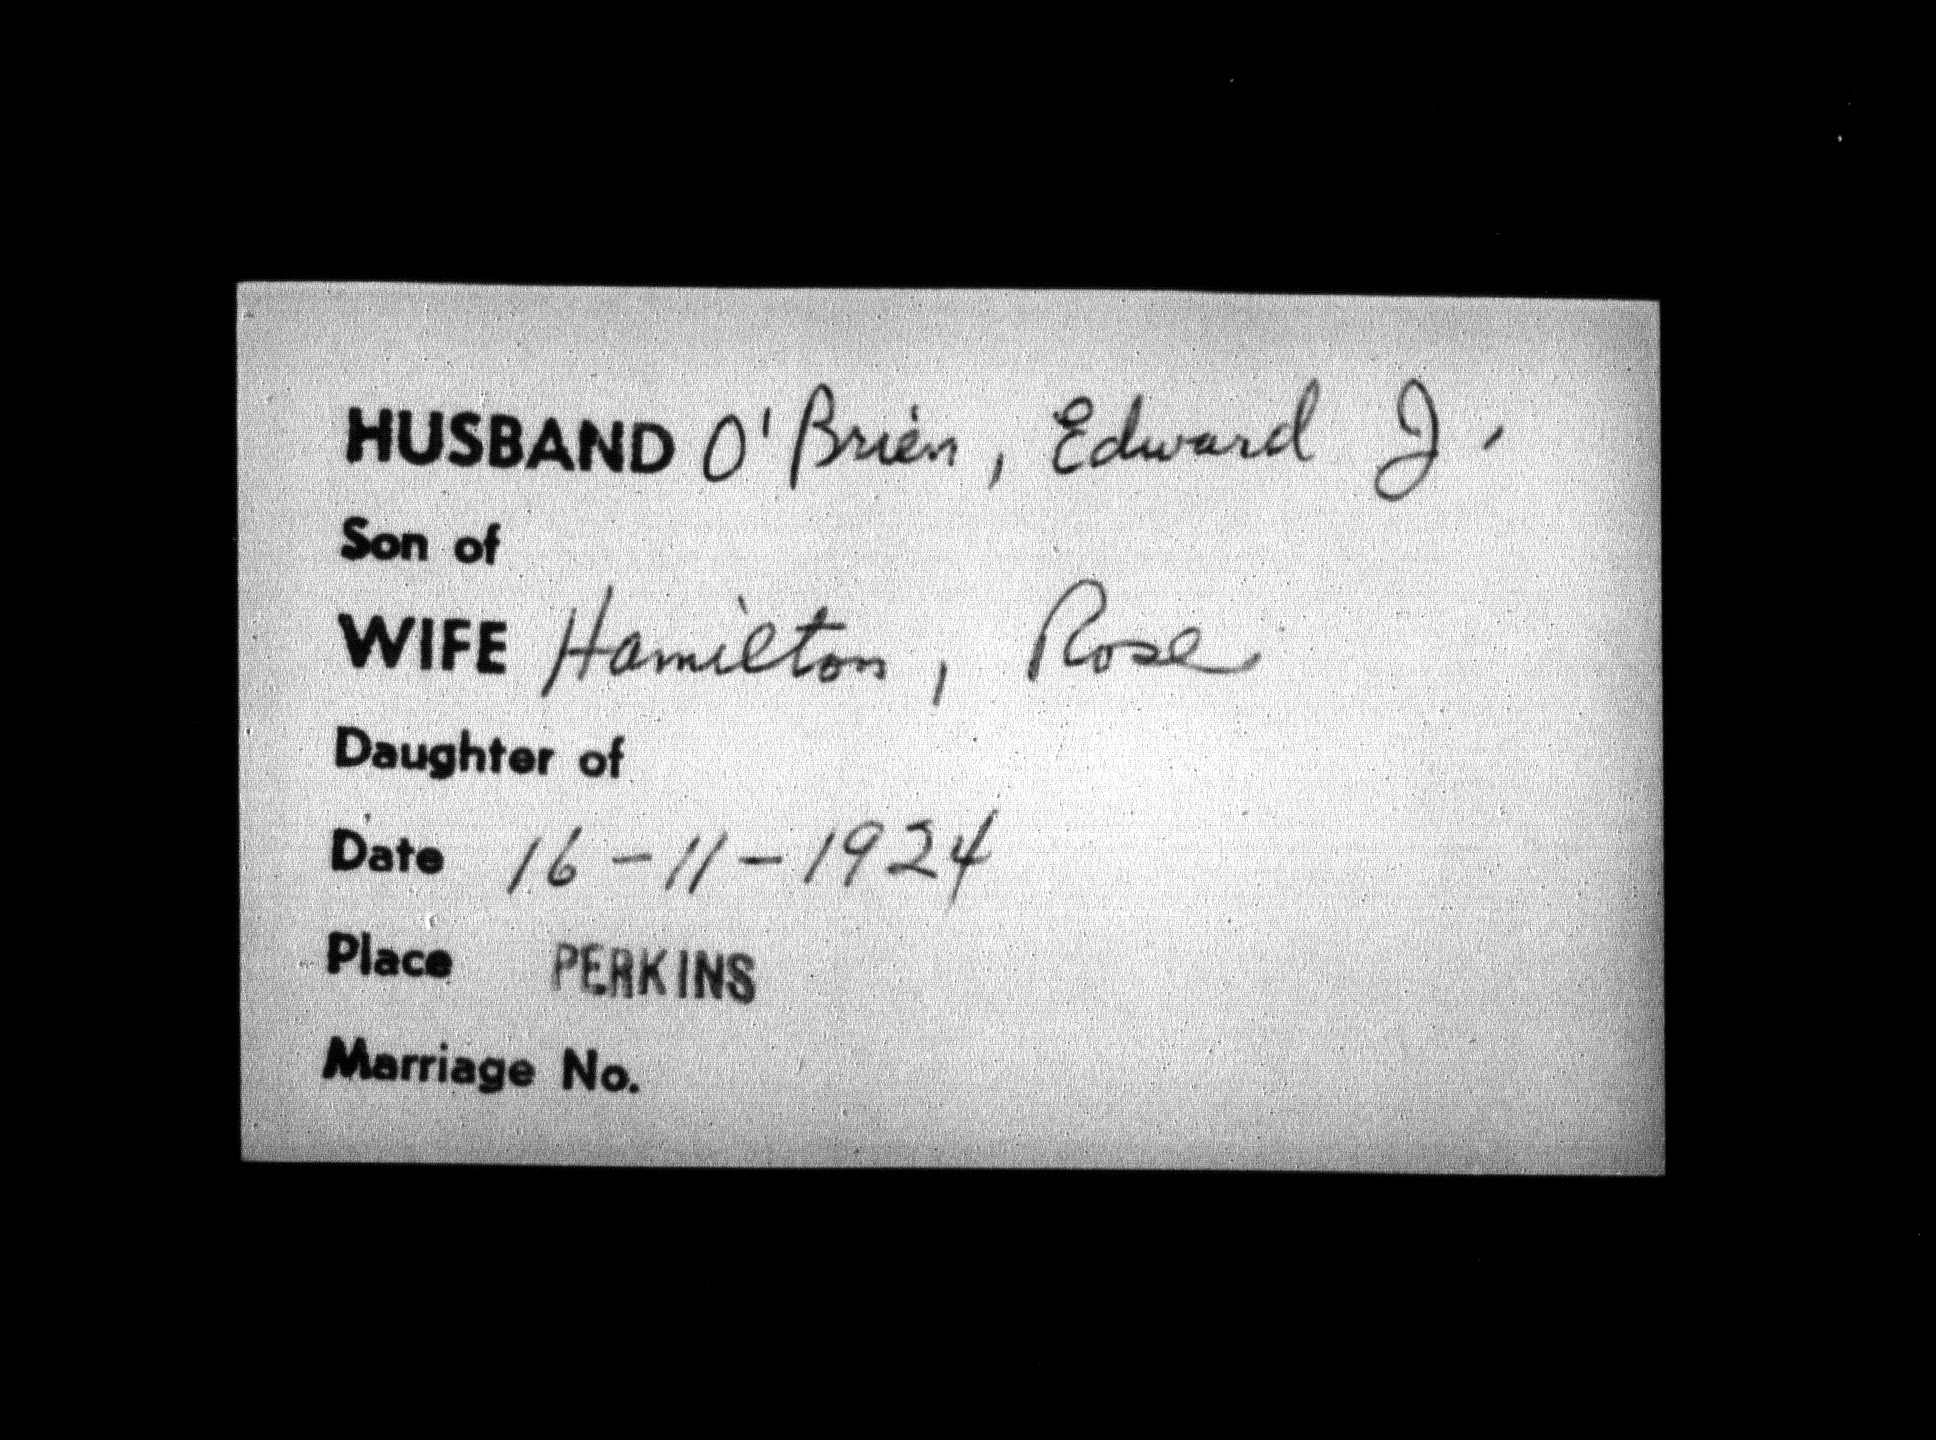 HUSBAND O'Brien, Edward J.
Son of
WIFE Hamilton, Rose
Daughter of
Date 16-11-1924
Place PERKINS
Marriage No.